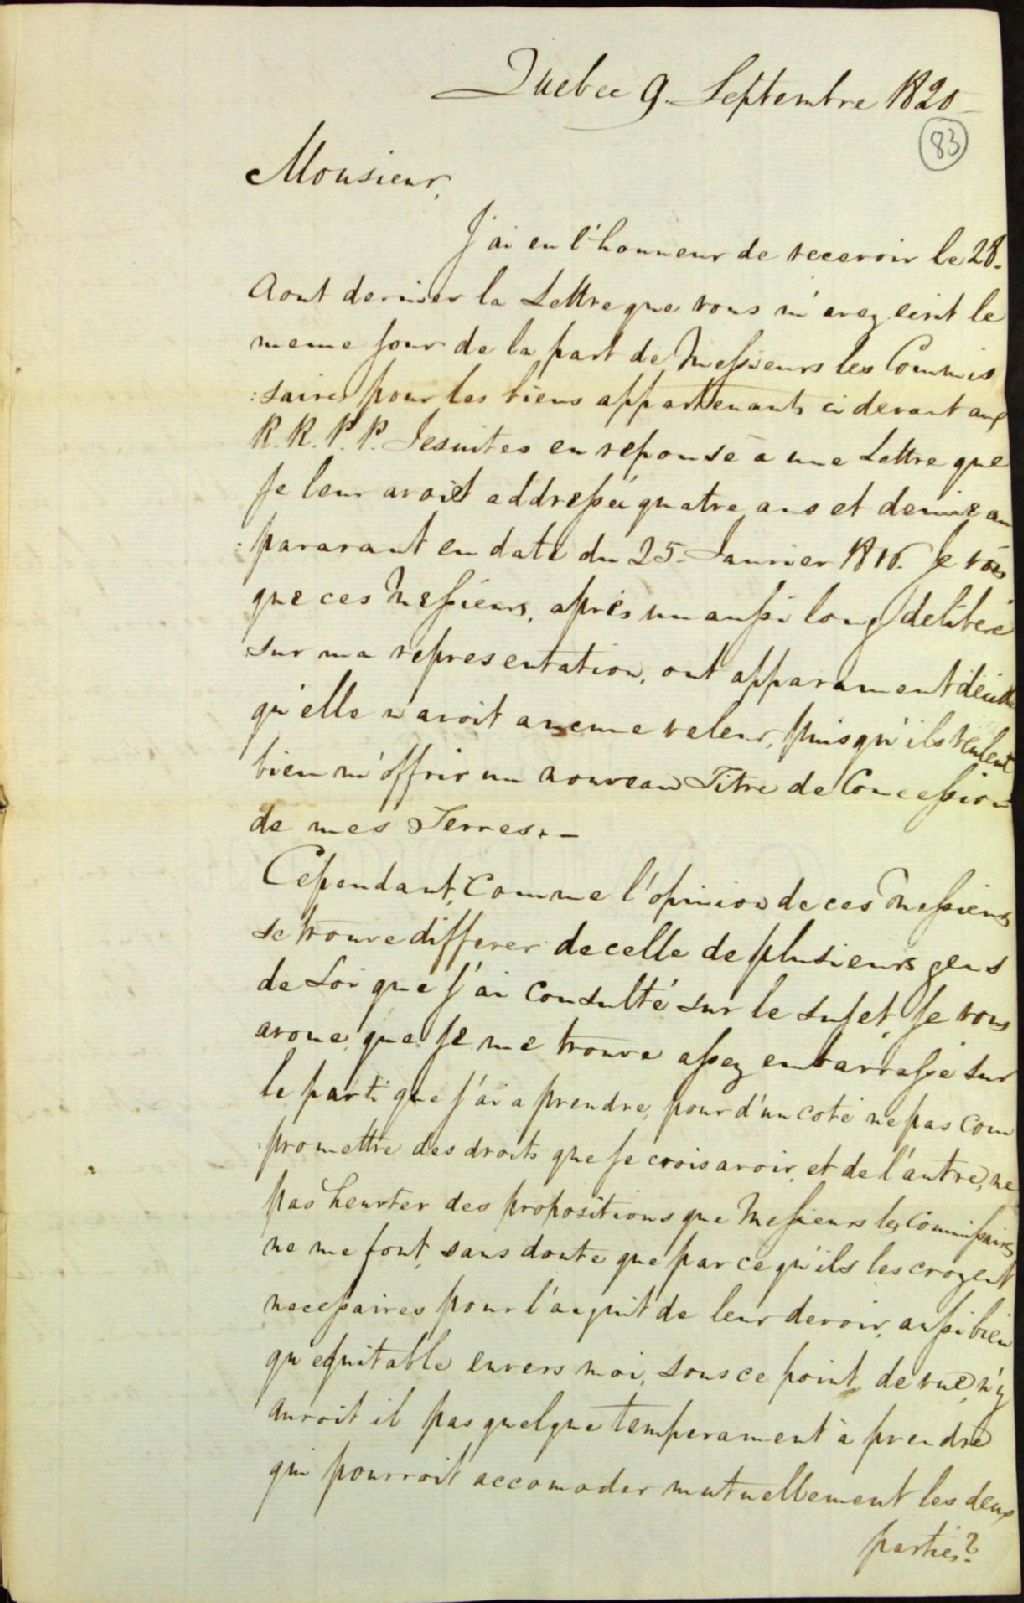 Quebec 9. Septembre 1820
83
Monsieur,
J'ai eu l'honneur de recevoir le 28.
Aout dernier la Lettre que vous m'avez ecrit le
meme jour de la part de Messieurs les Commis
:saires pour les biens appartenants ci devant aux
R.R. P.P. Jesuites en reponse à une Lettre que
Je leur avoit addressée quatre ans et demie au
:paravant en date du 25. Janvier 1816. Je vois
que ces Messieurs, après un aussi long deliberé
sur ma representation, ont apparament décidé
qu'elle n'avoit aucune valeur, puisqu'ils veulent
bien m'offrir un nouveau Titre de Concession
de mes Terres. -
Cependant, Comme l'opinion de ces Messieurs
se trouve differer de celle de plusieurs gens
de Loi que j'ai Consulté sur le sujet, Je vous
avoue que Je me trouve assez embarrassé sur
le parti que j'ai a prendre, pour d'un coté ne pas com
:promettre des droits que Je crois avoir, et de l'autre, ne
pas heurter des propositions que Messieurs les Commissaires
ne me font, sans doute que parce qu'ils les croyent
necessaires pour l'acquit de leur devoir, aussi bien
qu'equitable envers moi, sous ce point de vue, n'y
auroit il pas quelque temperament à prendre
qui pourroit accomoder mutuellement les deux
parties?